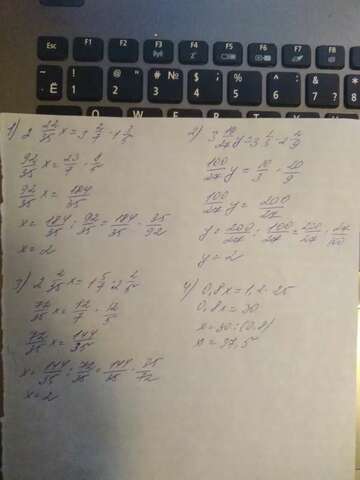 Esc F1 F2 F3 F4 F5 F6 F7
Ё 1 2 № # 3 $ 4 % 5 6
1) 2 22/35 x = 3 2/7 · 1 3/5
92/35 x = 23/7 · 8/5
92/35 x = 184/35
x = 184/35 : 92/35 = 184/35 · 35/92
x = 2
2) 3 19/27 y = 3 1/3 · 2 2/9
100/27 y = 10/3 · 20/9
100/27 y = 200/27
y = 200/27 : 100/27 = 200/27 · 27/100
y = 2
3) 2 2/35 x = 1 5/7 · 2 2/5
72/35 x = 12/7 · 12/5
72/35 x = 144/35
x = 144/35 : 72/35 = 144/35 · 35/72
x = 2
4) 0,8x = 1,2 · 25
0,8x = 30
x = 30 : (0,8)
x = 37,5